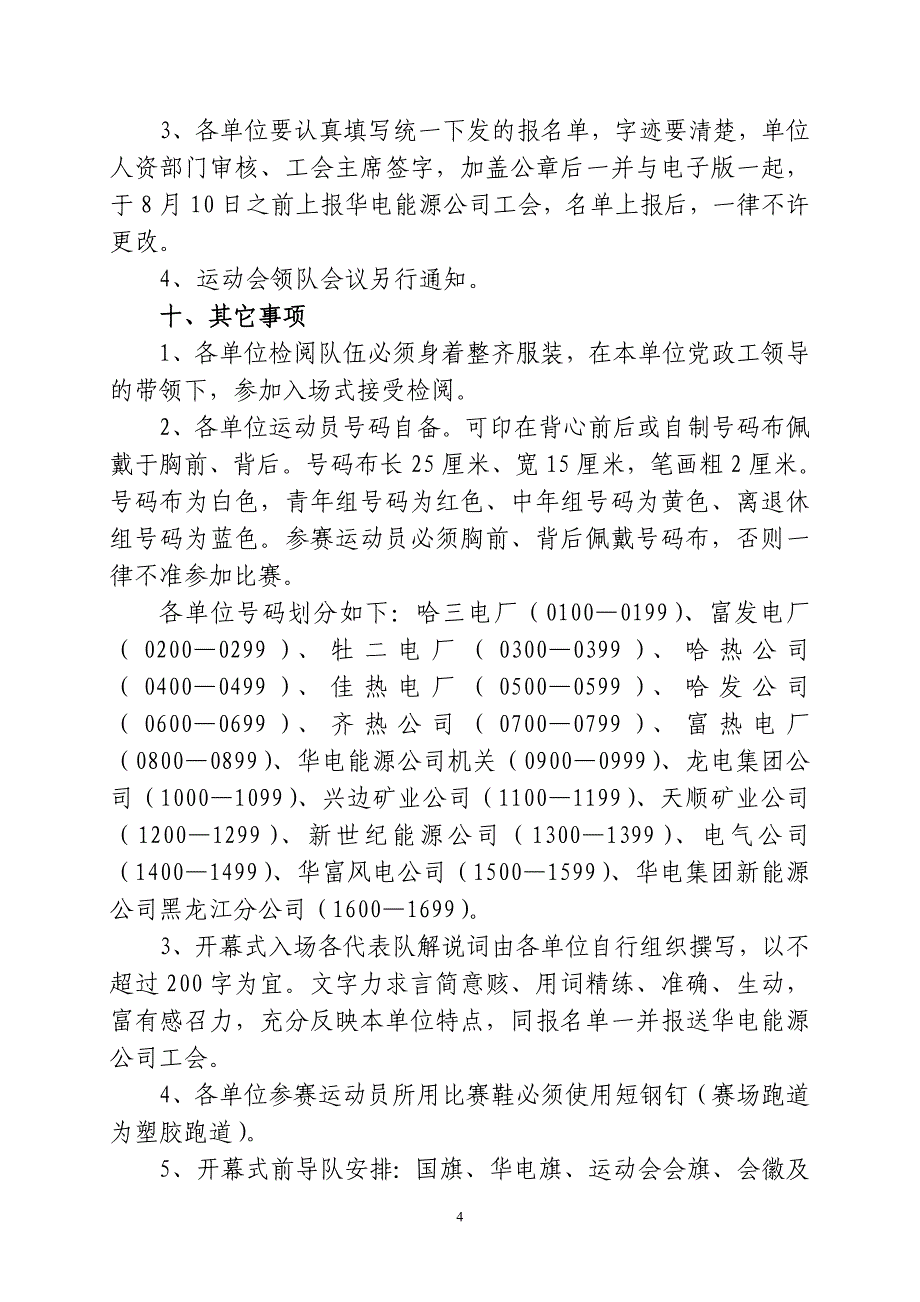 3、各单位要认真填写统一下发的报名单，字迹要清楚，单位
人资部门审核、工会主席签字，加盖公章后一并与电子版一起，
于 8 月 10 日之前上报华电能源公司工会，名单上报后，一律不许
更改。
4、运动会领队会议另行通知。
十、其它事项
1、各单位检阅队伍必须身着整齐服装，在本单位党政工领导
的带领下，参加入场式接受检阅。
2、各单位运动员号码自备。可印在背心前后或自制号码布佩
戴于胸前、背后。号码布长 25 厘米、宽 15 厘米，笔画粗 2 厘米。
号码布为白色，青年组号码为红色、中年组号码为黄色、离退休
组号码为蓝色。参赛运动员必须胸前、背后佩戴号码布，否则一
律不准参加比赛。
各单位号码划分如下：哈三电厂（0100—0199）、富发电厂
（0200—0299）、牡二电厂（0300—0399）、哈热公司
（0400—0499）、佳热电厂（0500—0599）、哈发公司
（0600—0699）、齐热公司（0700—0799）、富热电厂
（0800—0899）、华电能源公司机关（0900—0999）、龙电集团公
司（1000—1099）、兴边矿业公司（1100—1199）、天顺矿业公司
（1200—1299）、新世纪能源公司（1300—1399）、电气公司
（1400—1499）、华富风电公司（1500—1599）、华电集团新能源
公司黑龙江分公司（1600—1699）。
3、开幕式入场各代表队解说词由各单位自行组织撰写，以不
超过 200 字为宜。文字力求言简意赅、用词精练、准确、生动，
富有感召力，充分反映本单位特点，同报名单一并报送华电能源
公司工会。
4、各单位参赛运动员所用比赛鞋必须使用短钢钉（赛场跑道
为塑胶跑道）。
5、开幕式前导队安排：国旗、华电旗、运动会会旗、会徽及
4